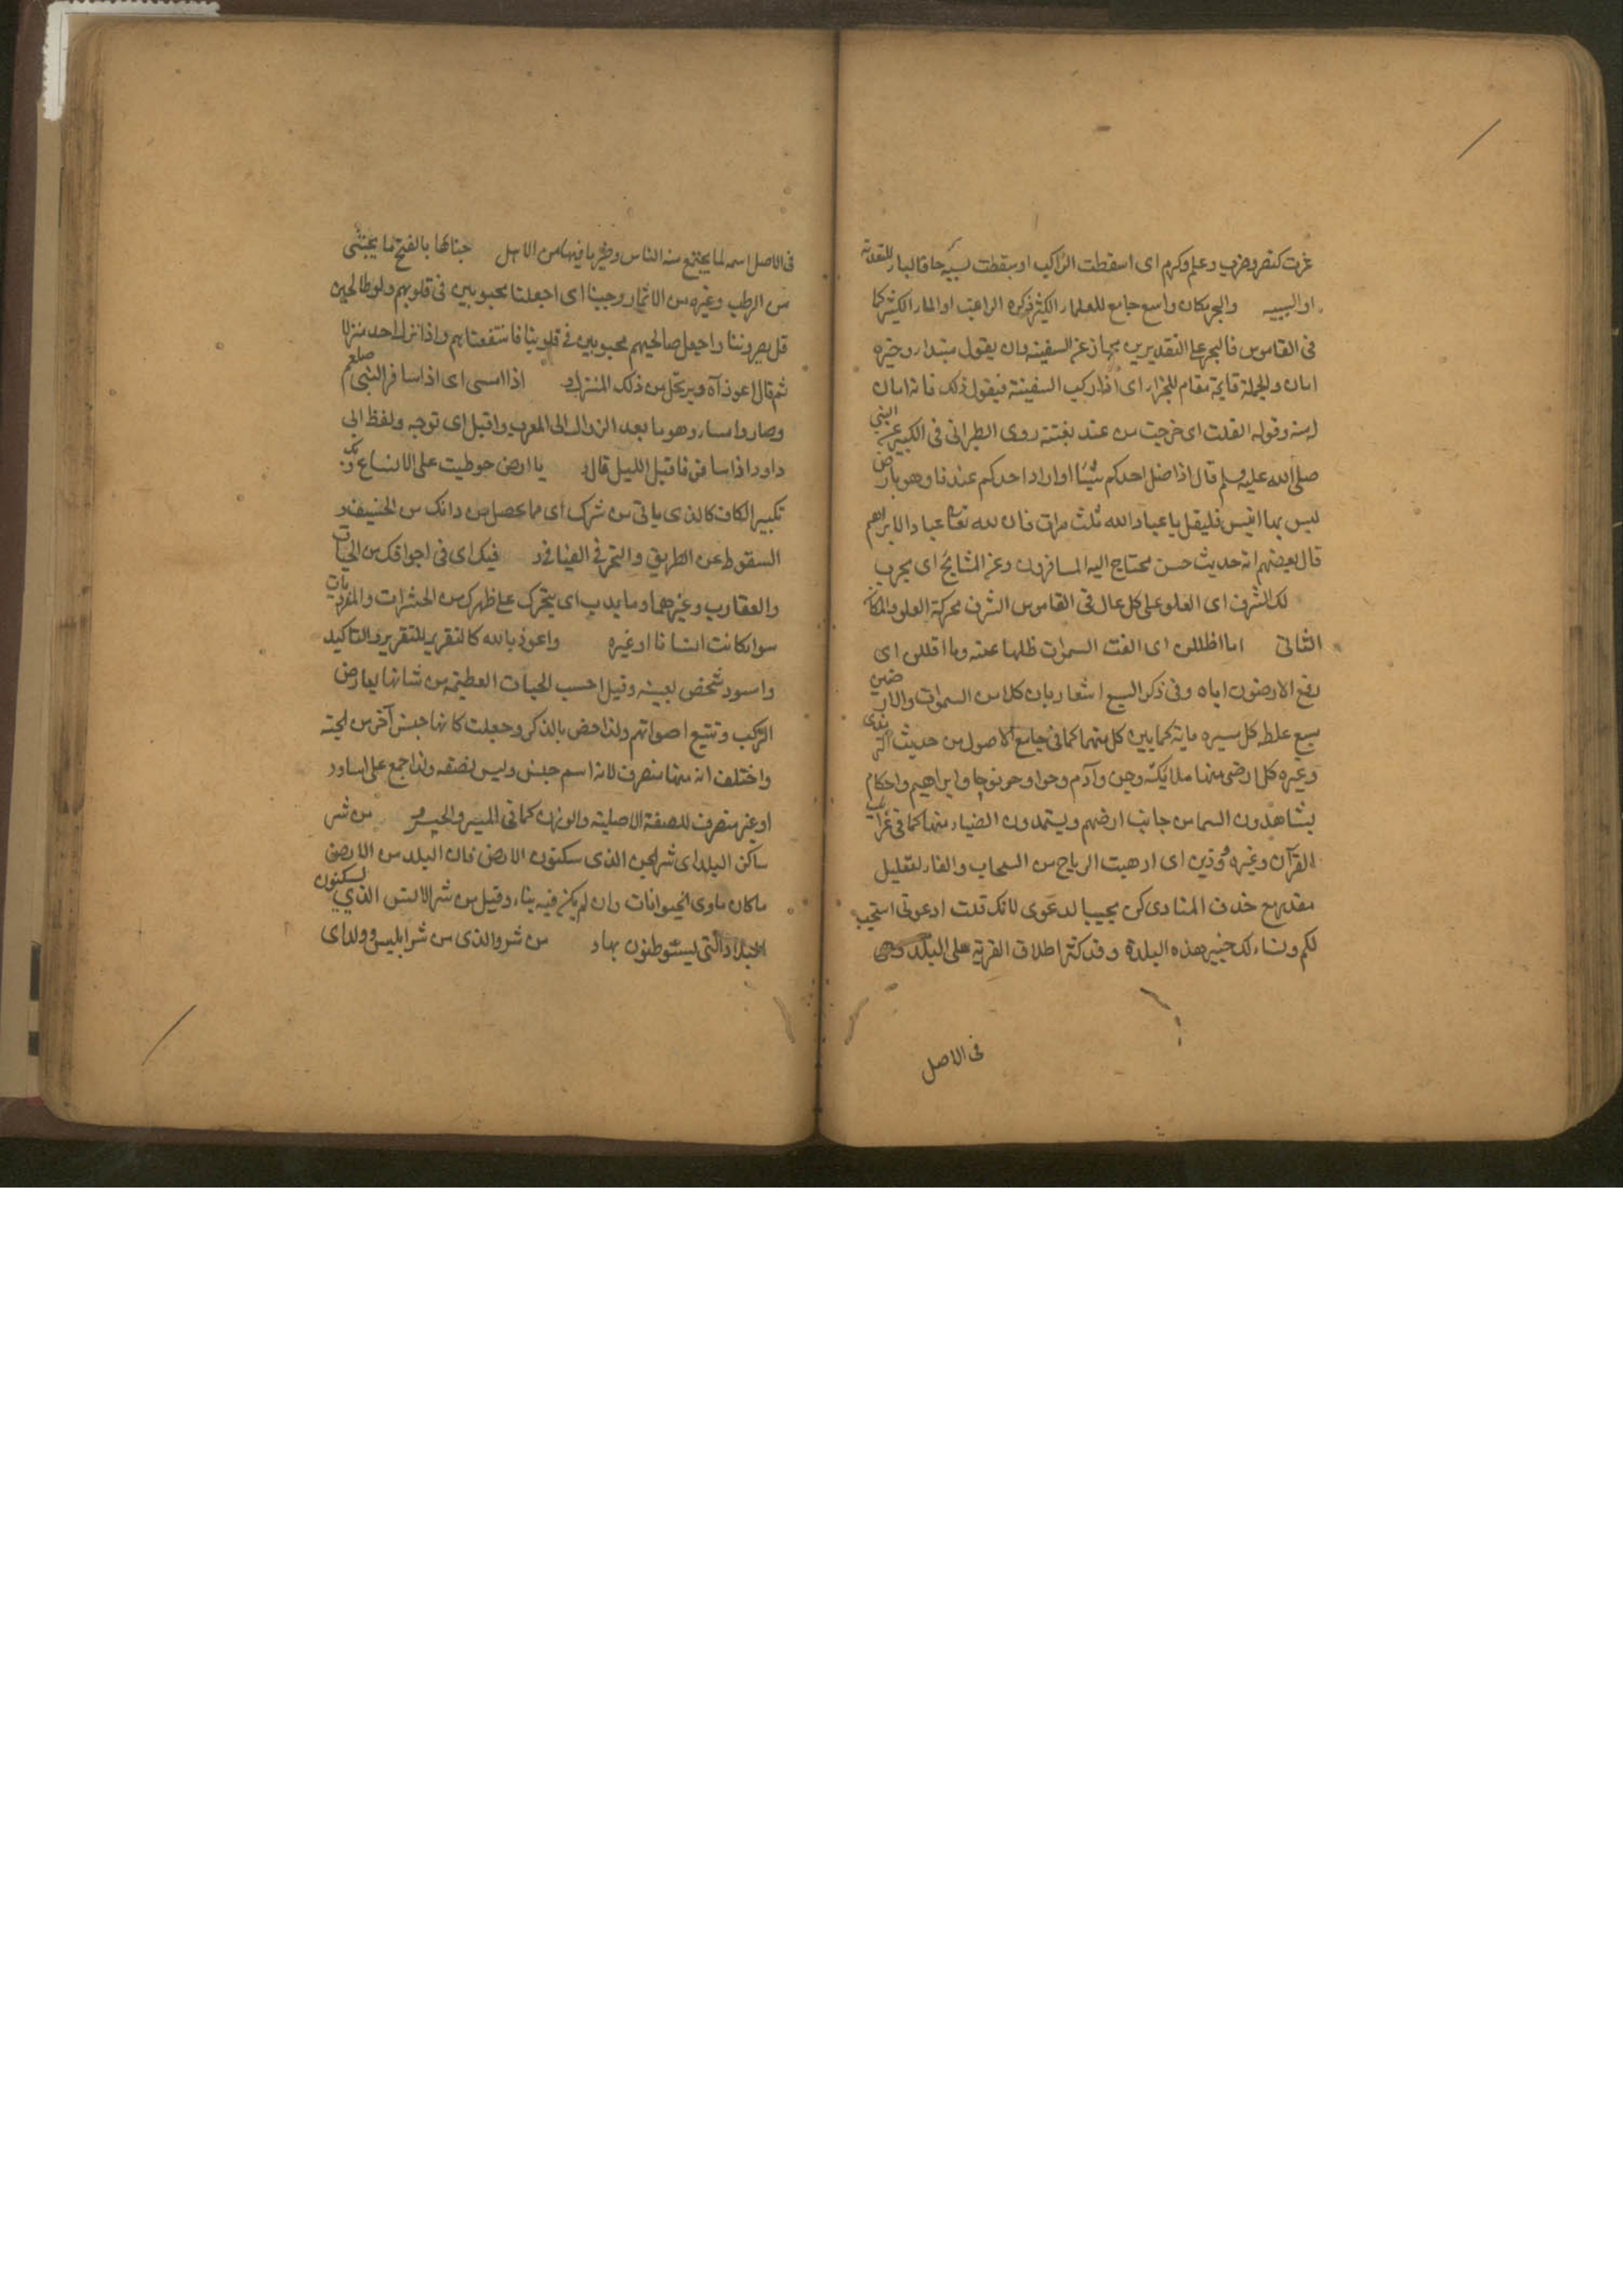 عثرت كنصر وضرب وعلم وكرم اى اسقطت الراكب او سقطت لسيرها فالباء للتعدية
او السببية والبحر مكان واسع جامع للماء الكثير ذكره الراغب او الماء الكثير كما
فى القاموس فالبحر على التقديرين مجاز عن السفينة وان يقول مبتداء وخبره
امان والجملة قايمة مقام للجزاء اى اذا ركب السفينة فيقول ذلك فانه امان
له منه وقوله انفلت اى خرجت من عند بغتة روى الطبرانى فى الكبير عن النبى
صلى الله عليه وسلم قال اذا ضل احدكم شيئا او اراد احدكم عونا وهو بارض
ليس بها انيس فليقل يا عباد الله ثلث مرات فان لله تعالى عبادا لا يراهم
قال بعضهم انه حديث حسن محتاج اليه المسافرون وعن المشايخ اى مجرب
لك الشرف اى العلو على كل عال فى القاموس الشرف محركة العلو والمكان
الثانى اما اظللن اى القت السموات ظلها عنه وما اقللن اى
رفع الارضون اياه وفى ذكر السبع اشعار بان كلا من السموات والارضين
سبع غلظ كل مسيره ماية كما بين كل منهما كما فى جامع الاصول من حديث الترمذى
وغيره كل ارض منها ملايكة وجن وآدم وحوا ونوح وابراهيم واحكام
يشاهدون السماء من جانب ارضهم ويستمدون الضياء منها كما فى غرايب
القرآن وغيره وذرين اى اذهبت الرياح من السحاب والفاء لتعليل
مقدر مع حذف المنادى كن مجيبا لدعوى لانك قلت ادعونى استجب
لكم ونساءلك خير هذه البلدة وقد كثر اطلاق القرية على البلد وهى
فى الاصل
فى الاصل اسم لما يجتمع منه الناس وخير ما فيها من الاهل جناها بالفتح ما يجتنى
من الرطب وغيره من الاثمار وحببنا اى اجعلنا محبوبين فى قلوبهم ولو طالحين
واجعل صالحيهم محبوبين فى قلوبنا فانتفعنا بهم واذا نزل احد منزلا
ثم قال اعوذ آه ويرتحل من ذلك المنزل د اذا امسى اى اذا سافر النبى صلعم
وصار وامسا وهو ما بعد الزوال الى المغرب واقبل اى توجه ولفظ ابى
داود اذا سافر فاقبل الليل قال د يا ارض خوطبت على الاتساع وبك
بكسر الكاف كالذى ياتى من شرك اى مما يحصل من ذاتك من الخسف و
السقوط عن الطريق والتحير فى الفيافى د فيك اى فى اجوافك من الحيات
والعقارب وغيرهما وما يدب اى يتحرك على ظهرك من الحشرات والمؤذيات
سوا كانت انسانا او غيره واعوذ بالله كالتقرير للتقرير والتاكيد
واسود شخص لعينه وقيل اخبث الحيات العظيمة من شانها يعارض
الركب وتتبع اصواتهم ولذا خص بالذكر وجعلت كانها جنس آخر من الحية
واختلف انه منها منصرف لانه اسم جنس وليس بصفة ولذا جمع على اساود
او غير منصرف للصفة الاصلية والوزن كما فى الميسر والحيسر من شر
ساكن البلد اى شر الجن الذى سكنون الارض فان البلد من الارض
ما كان ماوى الحيوانات وان لم يكن فيه بناء وقيل من شر الانس الذى يسكنون
البلاد التى يستوطنون بها د من شر والد اى من شر ابليس وولد اى